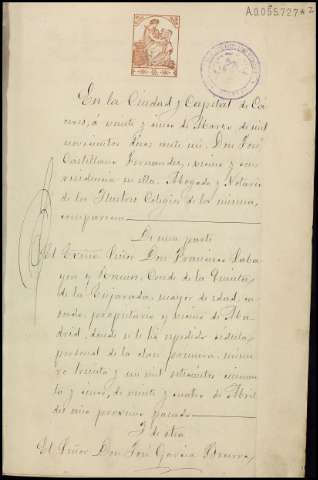 A0055727 * 2
En la Ciudad y Capital de Cá-
ceres, á veinte y cinco de Marzo de mil
novecientos ante mi Don José
Castellano Fernandez, vecino y con
residencia en ella, Abogado y Notario
de los Ilustres Colegios de la misma,
comparecen
De una parte
El Excmo Señor Don Francisco
y Conde de la Quinta
de la Enjarada, mayor de edad, ca-
sado, propietario y vecino de Ma-
drid, donde se le ha expedido cédula
personal de la clase primera, núme-
ro treinta y un mil setecientos cincuen-
ta y cinco, de veinte y cuatro de Abril
del año proximo pasado
Y de otra
El Señor Don José Garcia